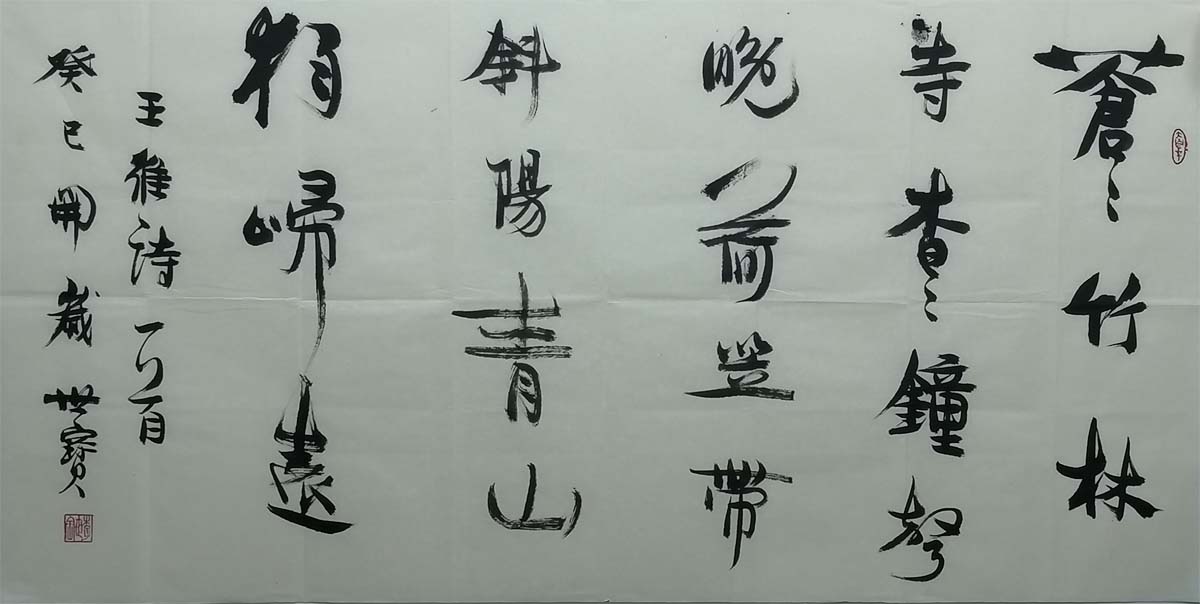 蒼〻竹林
寺杳〻鐘聲
晚荷笠帶
斜陽青山
獨歸遠
王維詩一首
癸巳開歲 世寶